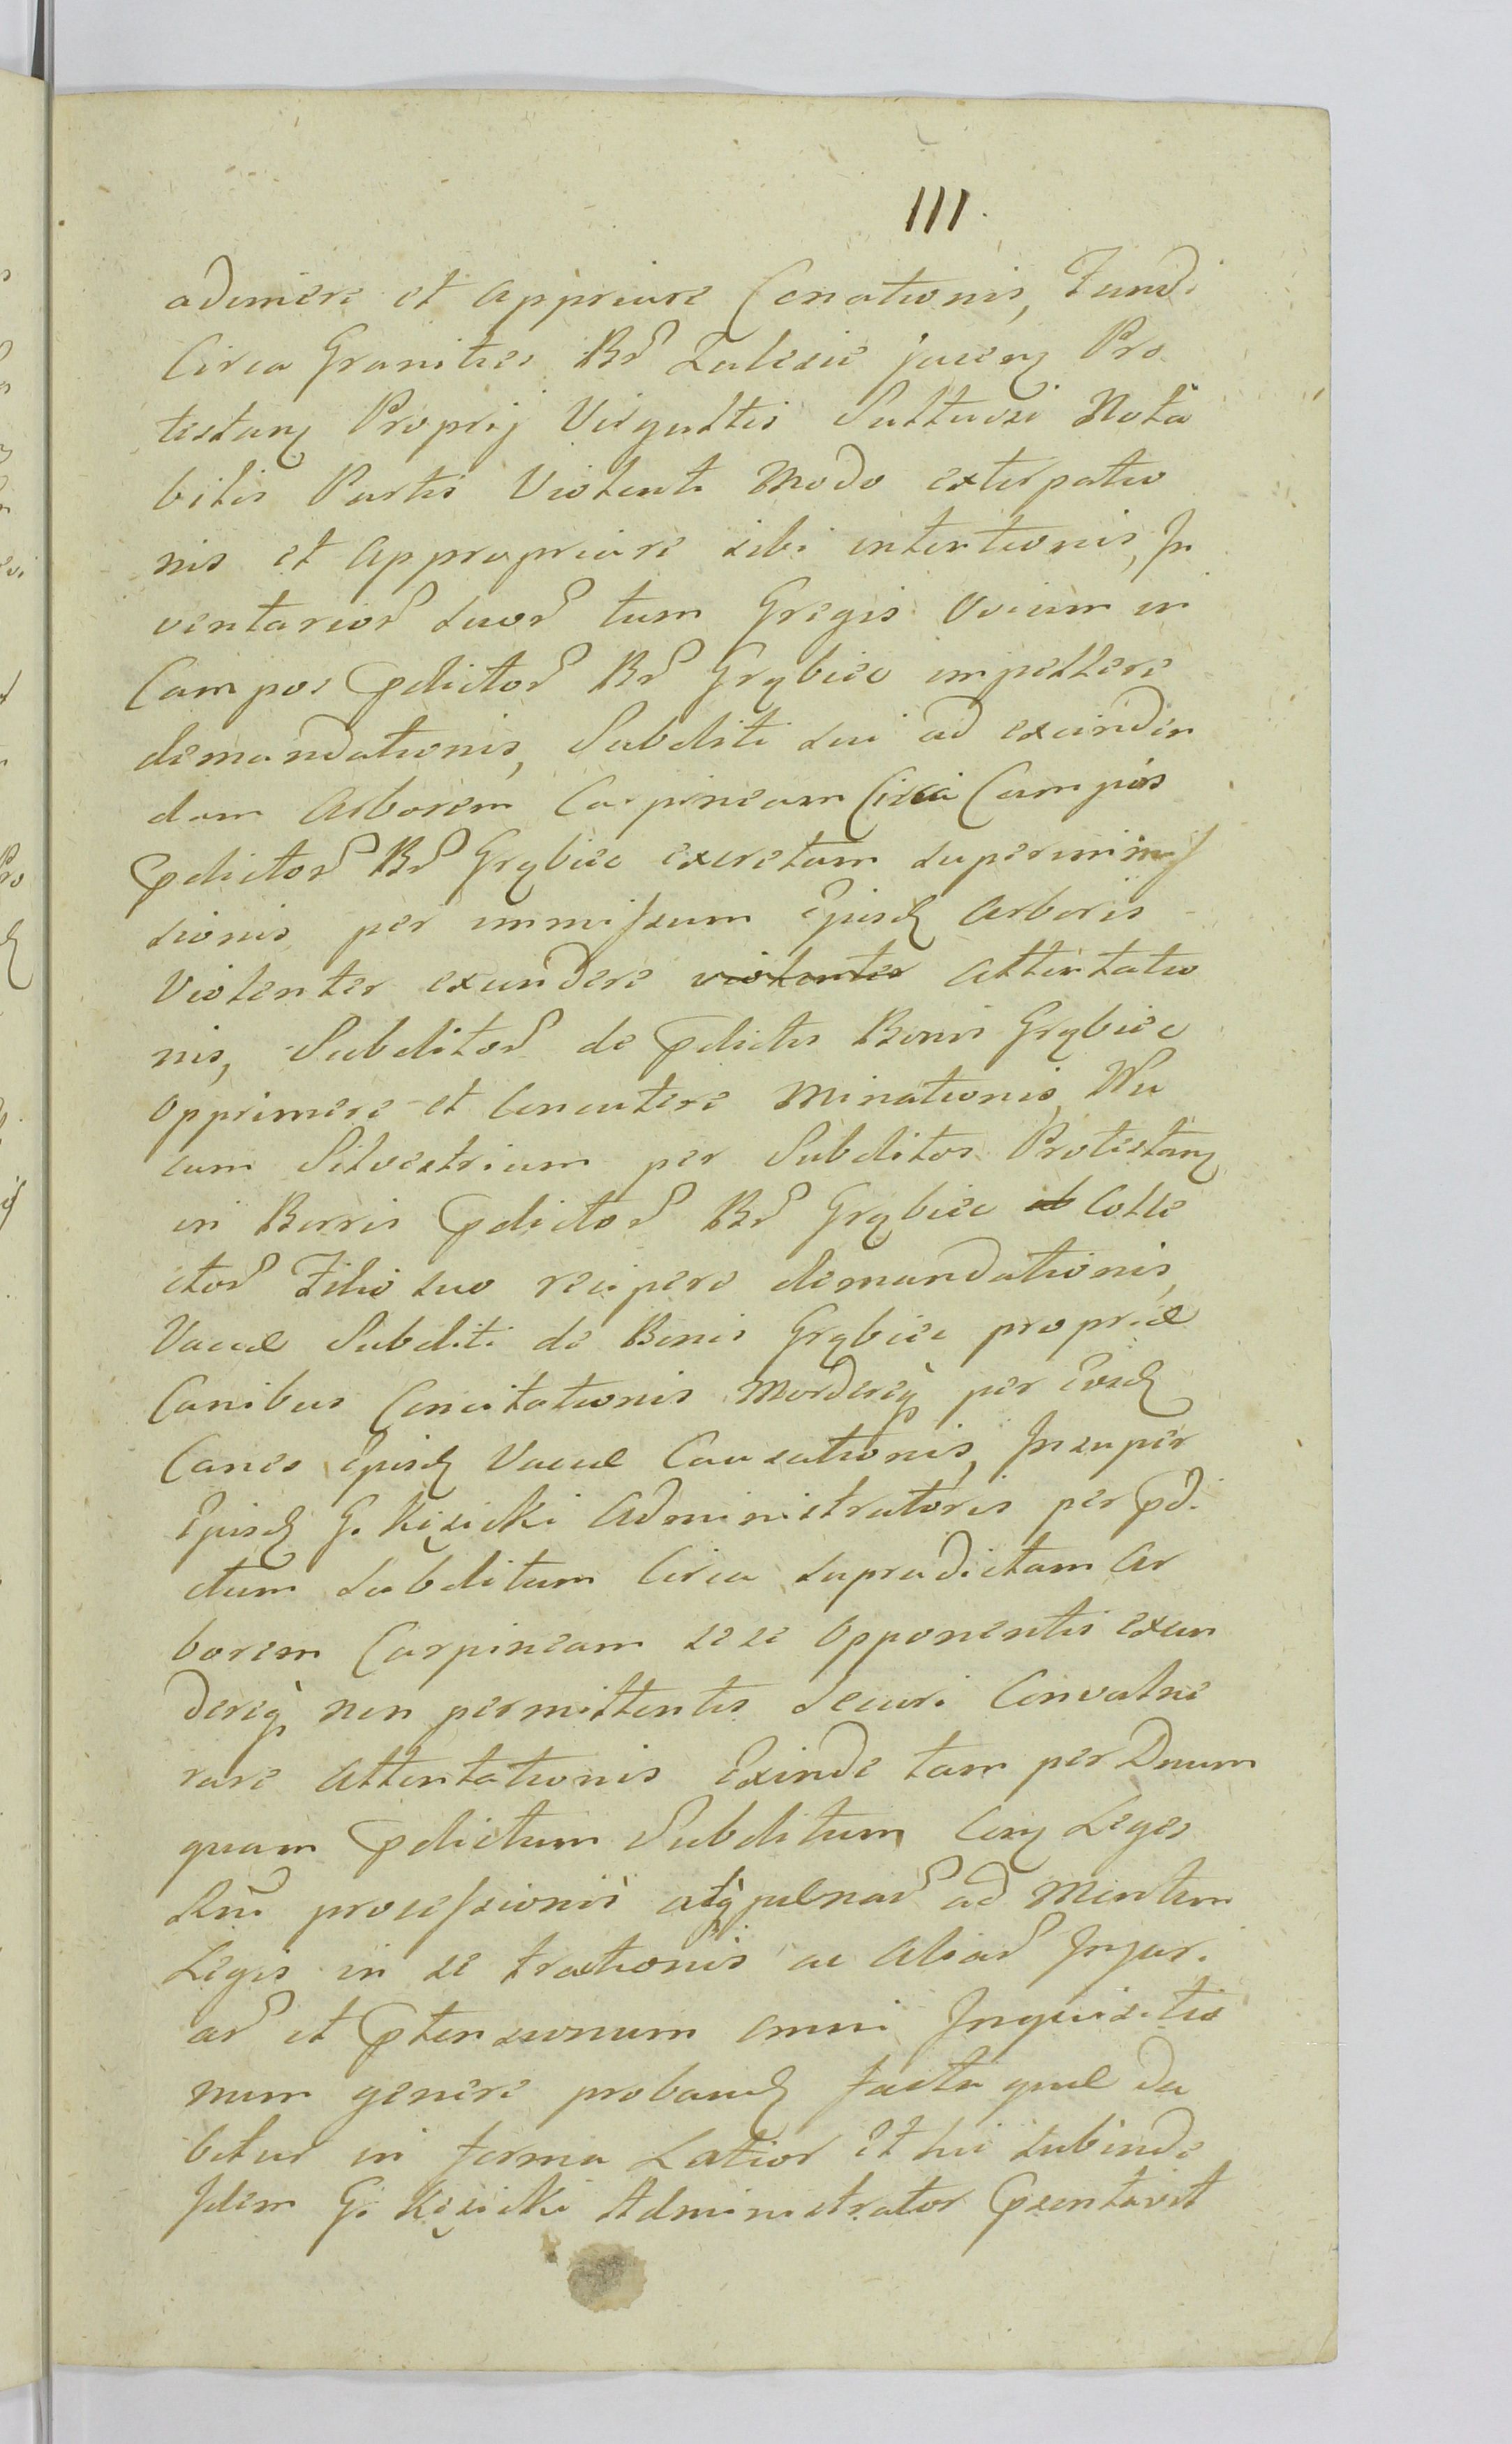 111.
adimere et appriare Conationis, Fundi
Circa Granities Br Zalesie jacen Pro
testan Proprij Virgultis Saltuosi Nota
bilis Partis Violenti modo extirpatio
nis et appropriare sibi intentionis, In
ventarior suor tum Gregis Ovium in
Campos pdictor Br Grąbiec impellere
demandationis, Subditi sui ad exscinden
dam Arborem Carpineam Circa Campos
pdictor Br Grąbiec excretam superimmis
sionis per immissum Ejusd Arboris
Violenter exundere violenter attentatio
nis, Subditor de pdictis Bonis Grąbiec
opprimere et Concutere Minationis, Nu
cum Silvestrium per Subditos Protestan
in Borris pdictor Br Grąbiec ab Colle
ctor Filio suo recipere demandationis,
Vaccæ Subditi de Bonis Grąbiec propriæ
Canibus Concitationis Mordereq per Eosd
Canes Ejusd Vaccæ Causationis, Insuper
Ejusd G. Kęsicki Administratoris per pdi
ctum subditum Circa supradictam Ar
borem Carpineam sese opponentis exun
dereq non permittentis Securi Convulne
rare attentationis Exinde tam per Dnum
quam pdictum Subditum Con Leges
Rni processionis atq pænar ad Mentem
Legis in se tractionis ac aliar Injuri
ar et ptensionum omni Inquisitio
num genere proband facta quæ da
bitur in forma Latior Et hic subinde
Idem G. Kęsicki Administrator psentavit